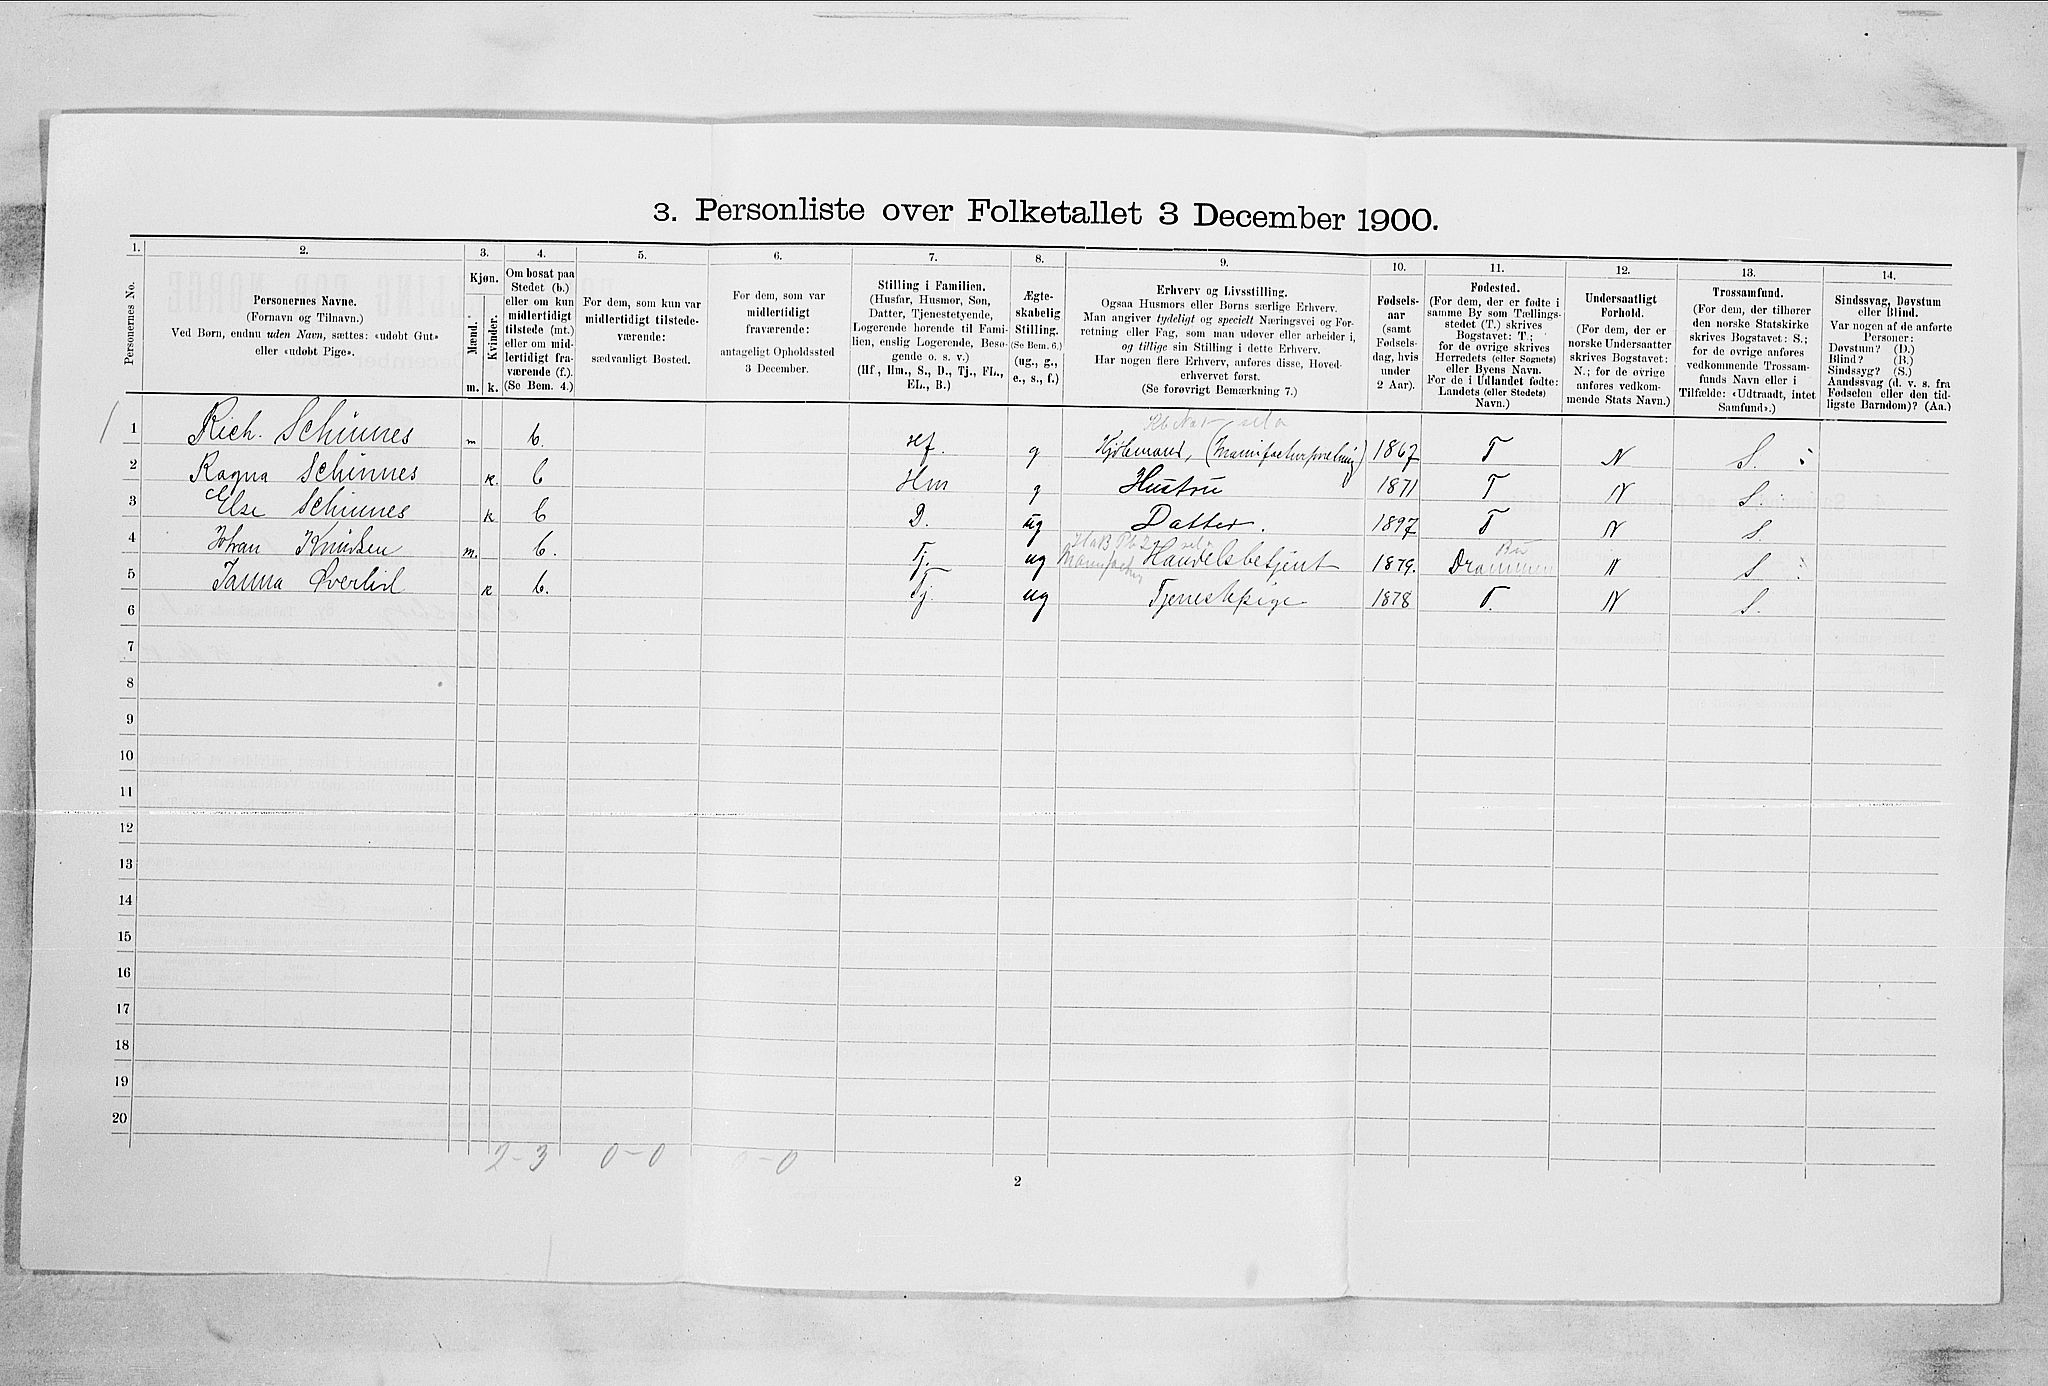 3. Personliste over Folketallet 3 December 1900.
1. 2. 3. 4. 5. 6. 7. 8. 9. 10. 11. 12. 13. 14.
Personernes No.
Personernes Navne.
(Fornavn og Tilnavn.)
Ved Børn, endnu uden Navn, sættes: «udøbt Gut»
eller «udøbt Pige».
Kjøn.
Mænd.
Kvinder.
m. k.
Om bosat paa
Stedet (b.)
eller om kun
midlertidigt
tilstede (mt.)
eller om mid-
lertidigt fra-
værende (f.).
(Se Bem. 4.)
For dem, som kun var
midlertidigt tilstede-
værende:
sædvanligt Bosted.
For dem, som var
midlertidigt
fraværende:
antageligt Opholdssted
3 December.
Stilling i Familien.
(Husfar, Husmor, Søn,
Datter, Tjenestetyende,
Logerende hørende til Fami-
lien, enslig Logerende, Besø-
gende o. s. v.)
(Hf., Hm., S., D., Tj., FL.,
EL., B.)
Ægte-
skabelig
Stilling.
(Se Bem. 6.)
(ug., g.,
e., s., f.)
Erhverv og Livsstilling.
Ogsaa Husmors eller Børns særlige Erhverv.
Man angiver tydeligt og specielt Næringsvei og For-
retning eller Fag, som man udøver eller arbeider i,
og tillige sin Stilling i dette Erhverv.
Har nogen flere Erhverv, anføres disse, Hoved-
erhvervet først.
(Se forøvrigt Bemærkning 7.)
Fødsels-
aar
(samt
Fødsels-
dag, hvis
under
2 Aar).
Fødested.
(For dem, der er fødte i
samme By som Tællings-
stedet (T.) skrives
Bogstavet: T.;
for de øvrige skrives
Herredets (eller Sognets)
eller Byens Navn.
For de i Udlandet fødte:
Landets (eller Stedets)
Navn.)
Undersaatligt
Forhold.
(For dem, der er
norske Undersaatter
skrives Bogstavet:
N.; for de øvrige
anføres vedkom-
mende Stats Navn.)
Trossamfund.
(For dem, der tilhører
den norske Statskirke
skrives Bogstavet: S.;
for de øvrige anføres
vedkommende Trossam-
funds Navn eller i
Tilfælde: «Udtraadt, intet
Samfund».)
Sindssvag, Døvstum
eller Blind.
Var nogen af de anførte
Personer:
Døvstum? (D.)
Blind? (B.)
Sindssyg? (S.)
Aandssvag (d. v. s. fra
Fødselen eller den tid-
ligste Barndom)? (Aa.)
1 Rich. Schinnes m b. Hf. g Kjøbmand, (Manufacturforretning) 1867 T N S.
2 Ragna Schinnes k. b Hm g Hustru 1871 T N S.
3 Else Schinnes k b D. ug Datter. 1897 T N S
4 Johan Knudsen m. b. Tj. ug Manufactur Handelsbetjent 1879. Drammen N S
5 Janna Øverlid k b. Tj. ug Tjenestpige 1878 T. N S.
6
7
8
9
10
11
12
13
14
15
16
17
18
19
20
2-3 0-0 0-0
2